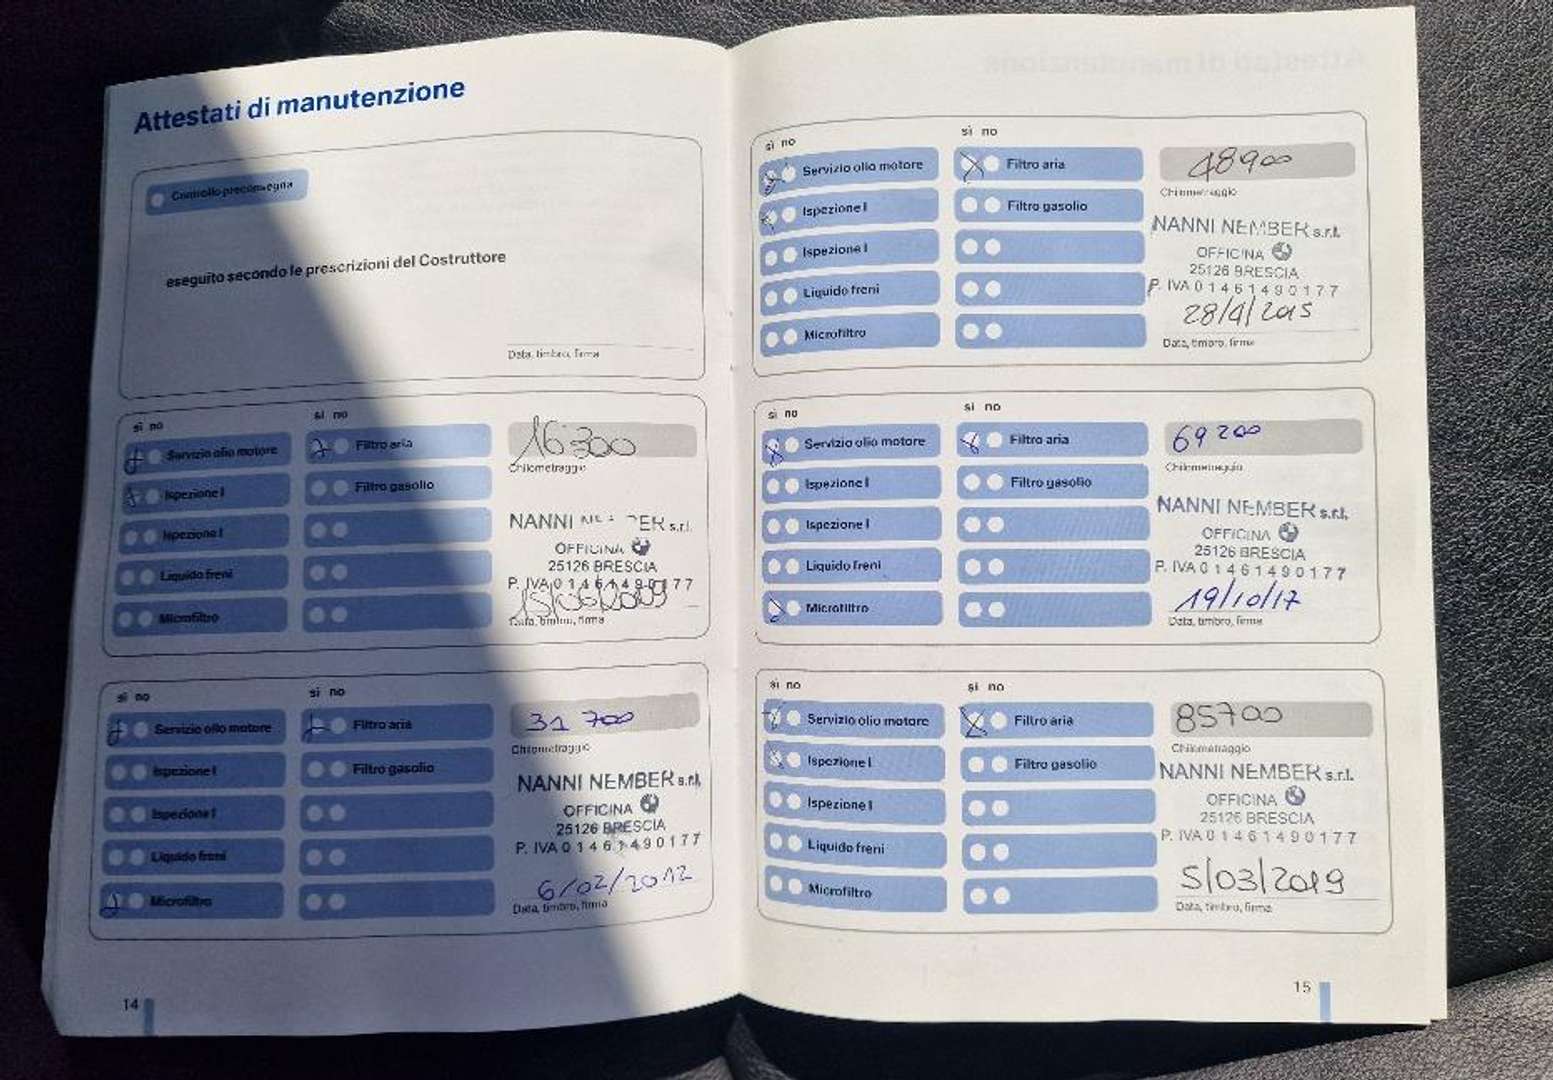 Attestati di manutenzione
Controllo preconsegna
eseguito secondo le prescrizioni del Costruttore
Data, timbro, firma
sì no
sì no
Servizio olio motore
Filtro aria
16300
Chilometraggio
Ispezione I
Filtro gasolio
Ispezione I
Liquido freni
Microfiltro
NANNI NEMBER s.r.l.
OFFICINA
25126 BRESCIA
P. IVA 0 1 4 6 1 4 9 0 1 7 7
Data, timbro, firma
sì no
sì no
Servizio olio motore
Filtro aria
31 700
Chilometraggio
Ispezione I
Filtro gasolio
Ispezione I
Liquido freni
Microfiltro
NANNI NEMBER s.r.l.
OFFICINA
25126 BRESCIA
P. IVA 0 1 4 6 1 4 9 0 1 7 7
6/02/2012
Data, timbro, firma
14
sì no
sì no
Servizio olio motore
Filtro aria
48900
Chilometraggio
Ispezione I
Filtro gasolio
Ispezione I
Liquido freni
Microfiltro
NANNI NEMBER s.r.l.
OFFICINA
25126 BRESCIA
P. IVA 0 1 4 6 1 4 9 0 1 7 7
28/4/2015
Data, timbro, firma
sì no
sì no
Servizio olio motore
Filtro aria
69200
Chilometraggio
Ispezione I
Filtro gasolio
Ispezione I
Liquido freni
Microfiltro
NANNI NEMBER s.r.l.
OFFICINA
25126 BRESCIA
P. IVA 0 1 4 6 1 4 9 0 1 7 7
19/10/17
Data, timbro, firma
sì no
sì no
Servizio olio motore
Filtro aria
85700
Chilometraggio
Ispezione I
Filtro gasolio
Ispezione I
Liquido freni
Microfiltro
NANNI NEMBER s.r.l.
OFFICINA
25126 BRESCIA
P. IVA 0 1 4 6 1 4 9 0 1 7 7
5/03/2019
Data, timbro, firma
15